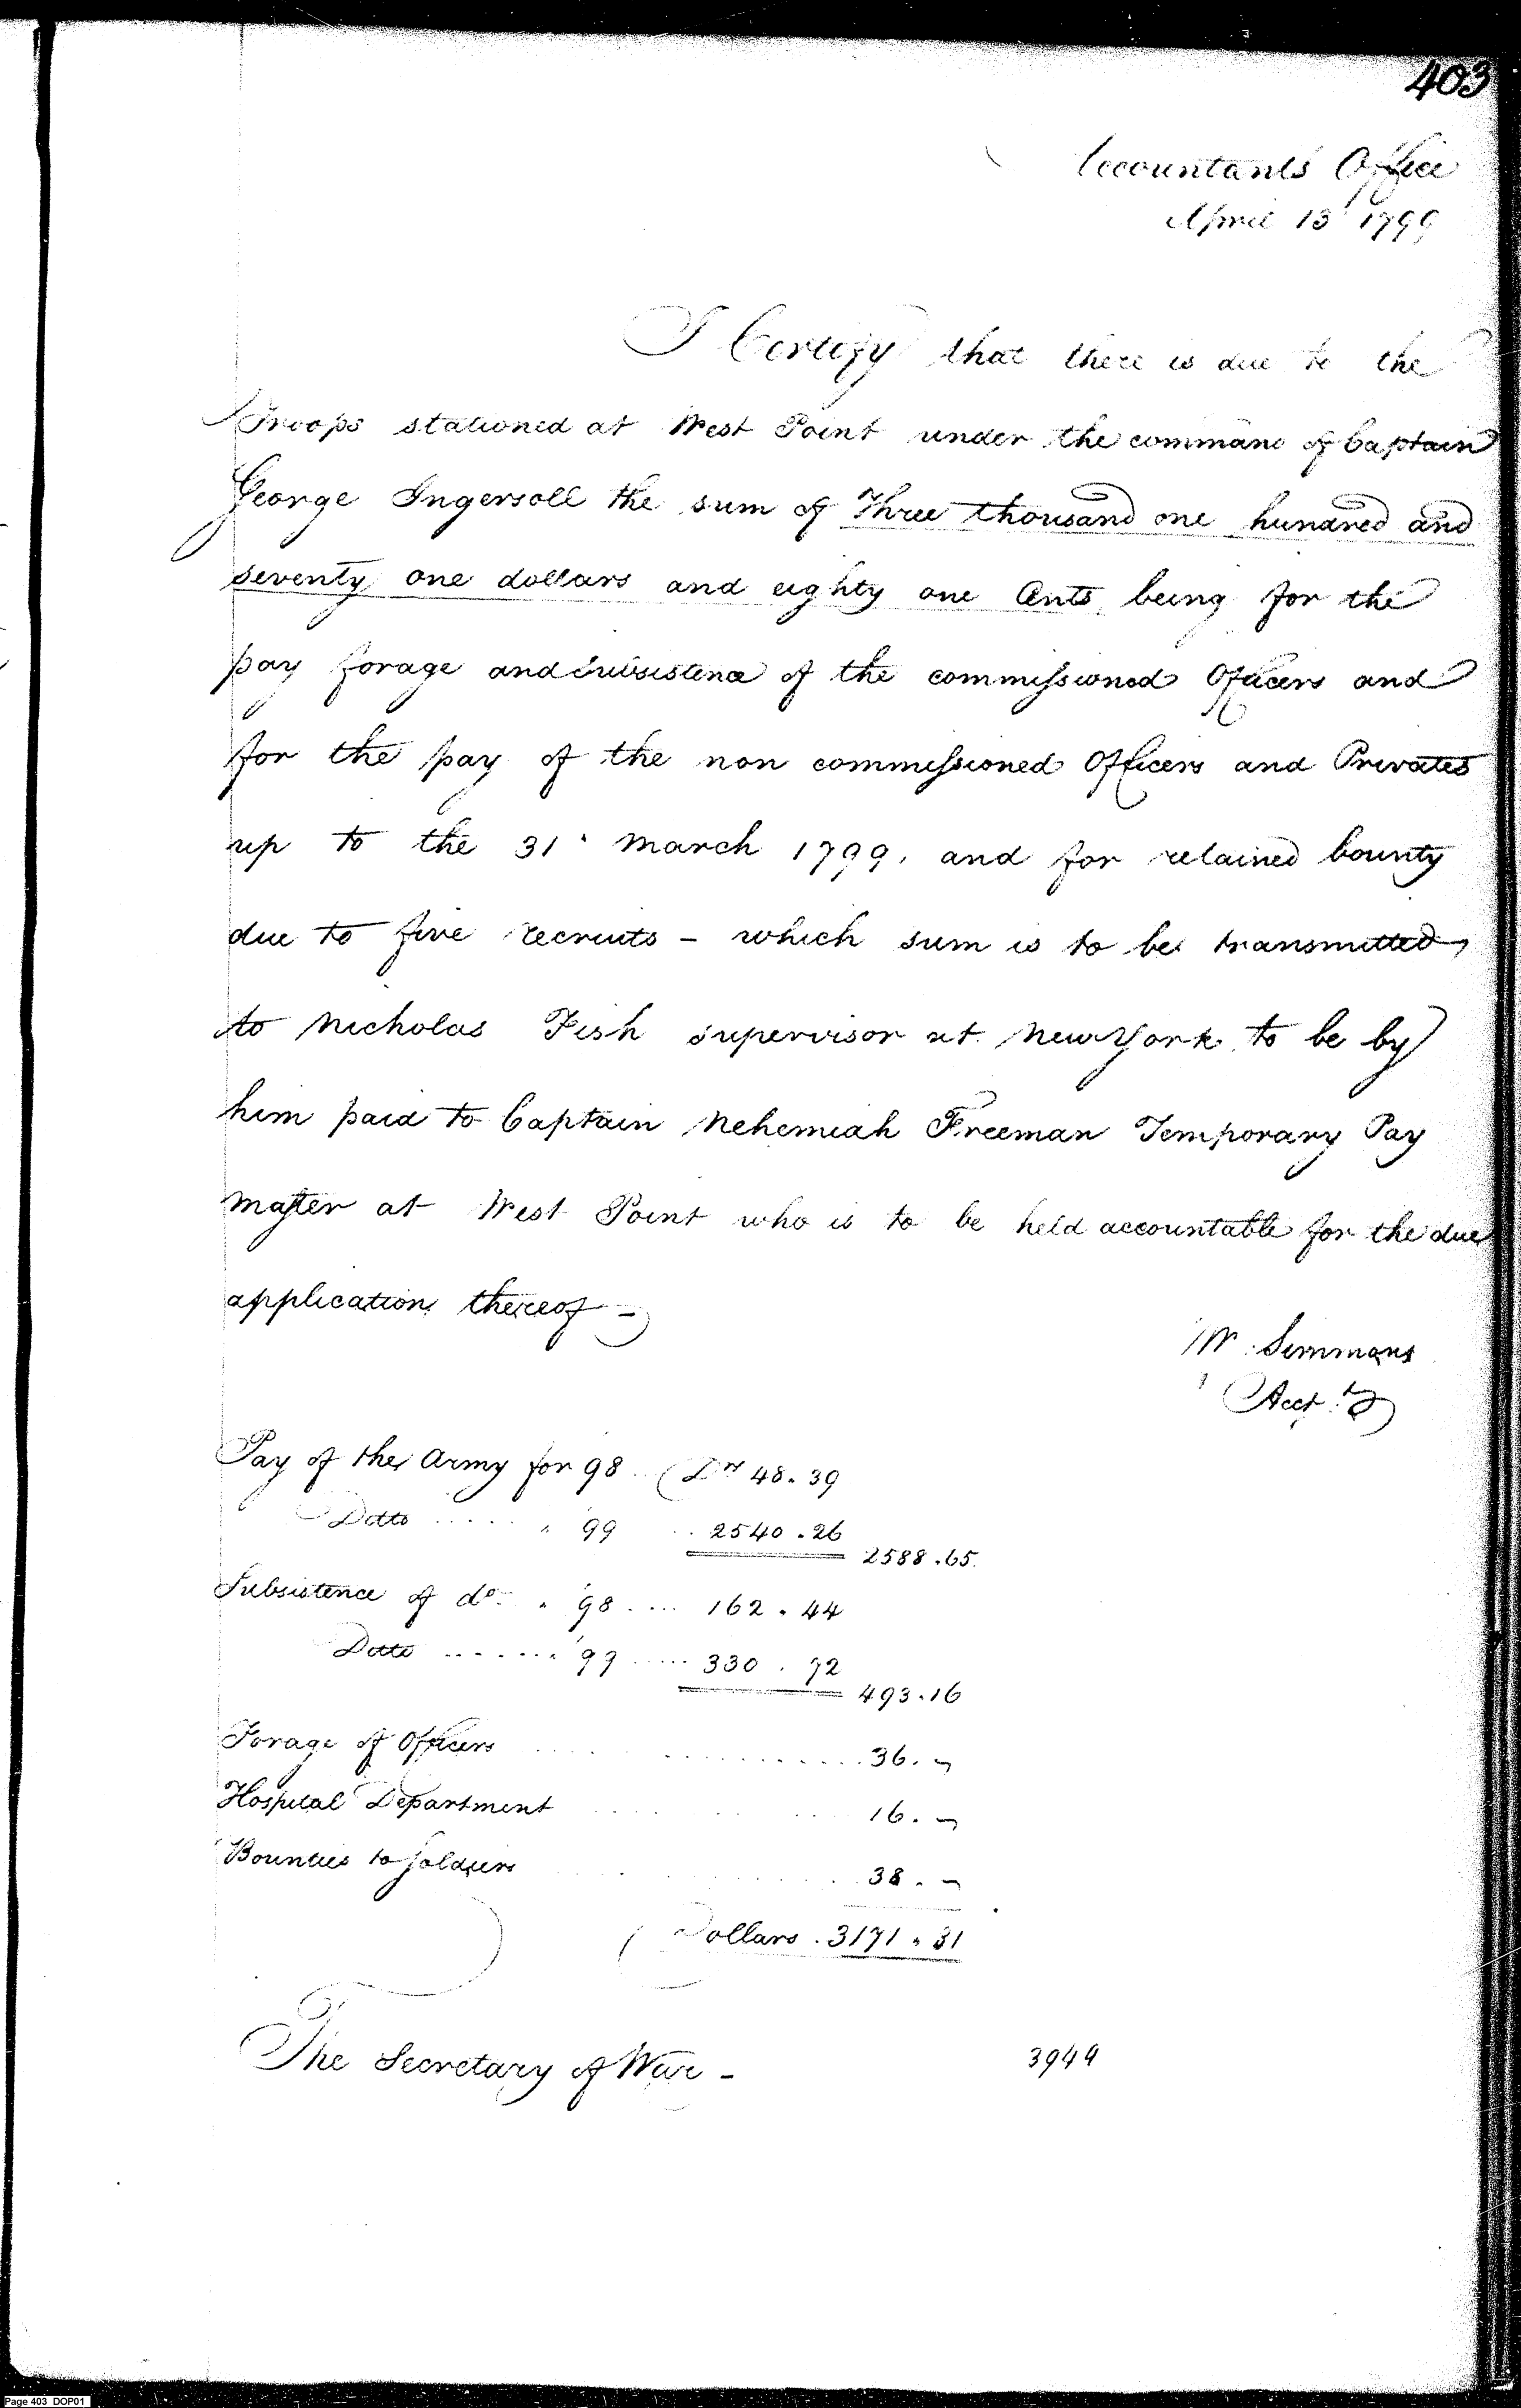 403
Accountants Office
April 13 1799
I Certify that there is due to the
Troops stationed at West Point under the command of Captain
George Ingersoll the sum of Three thousand one hundred and
seventy one dollars and eighty one Cents being for the
pay forage and subsistence of the commissioned Officers and
for the pay of the non commissioned Officers and Privates
up to the 31 March 1799, and for retained bounty
due to five recruits - which sum is to be transmitted
to Nicholas Fish supervisor at New York to be by
him paid to Captain Nehemiah Freeman Temporary Pay
master at West Point who is to be held accountable for the due
application thereof -
W. Simmons
Acct.t
Pay of the Army for 98 .. Drs 48.39
Ditto ..... " 99 .. 2540.26
2588.65
Subsistence of do. " 98 .... 162.44
Ditto ....... " 99 ..... 330.72
493.16
Forage of Officers ..... 36. -
Hospital Department ..... 16. -
Bounties to Soldiers ..... 38. -
Dollars . 3171.81
The Secretary of War -
3949
Page 403 DOP01